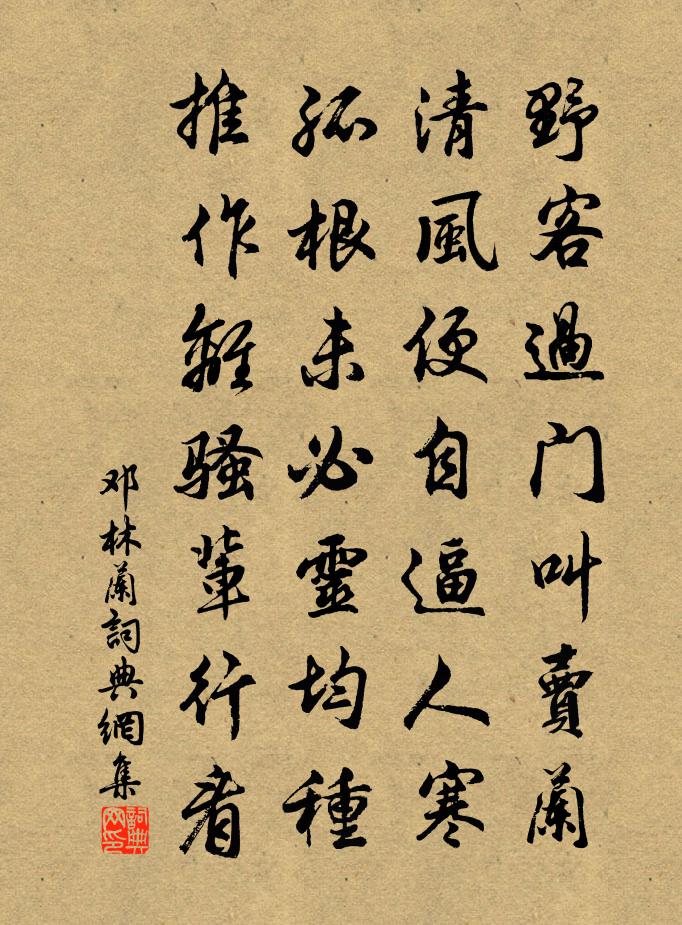 野客過门叫賣蘭
清風便自逼人寒
孤根未必靈均種
推作離騷輩行看
邓林蘭詞典網集
詞典网印